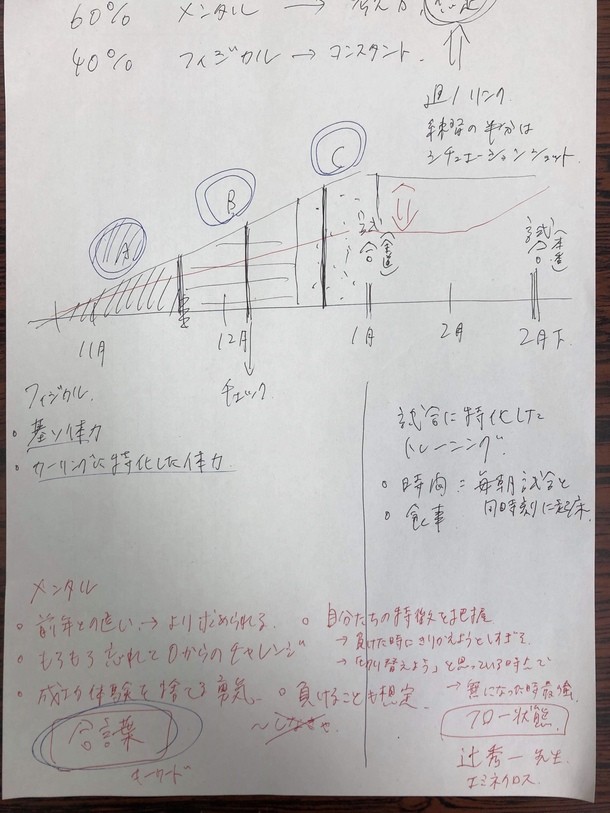 60% メンタル → 考え方、
40% フィジカル → コンスタント.
週1リンク
練習の半分は
シチュエーションショット.
C
B
A
試合(全道)
試合(本番)
11月
12月
1月
2月
2月下.
チェック
フィジカル.
• 基ソ体力
• カーリングに特化した体力
試合に特化した
トレーニング.
• 時間 : 毎朝試合と
同時刻に起床
• 食事
メンタル
• 前年との違い → より求められる.
• もろもろ忘れて0からのチャレンジ
• 成功体験を捨てる勇気、
• 自分たちの特徴を把握
→ 負けた時にきりかえようとしすぎる
→ 「切り替えよう」と思っている時点で
→ 無になった時最強.
• 負けることも想定.
〜しなきゃ
フロー状態
合言葉
キーワード
辻秀一先生
エミネクロス.